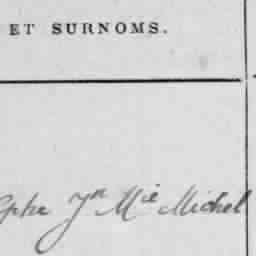 ET SURNOMS.
Jn Mie Michel